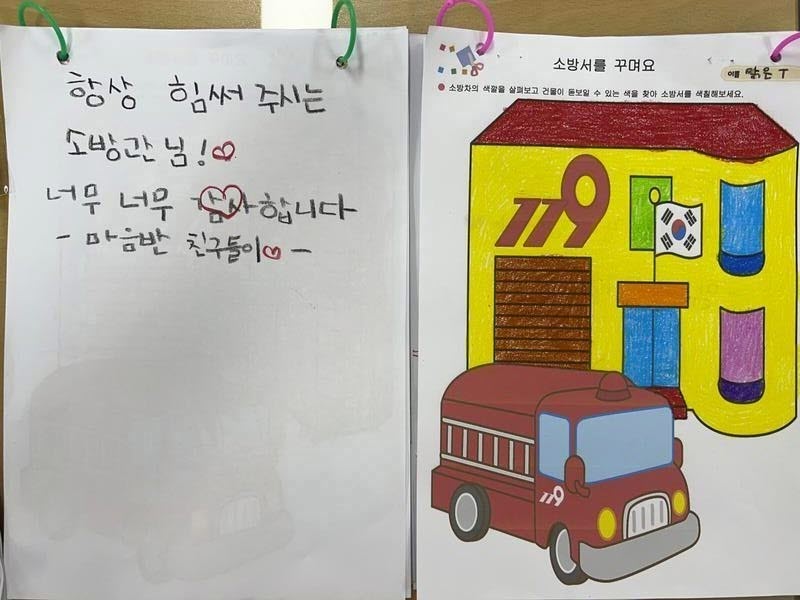 항상 힘써 주시는
소방관님!
너무 너무 감사합니다
- 마음반 친구들이 -
소방서를 꾸며요
이름 맑은 T
소방차의 색깔을 살펴보고 건물이 돋보일 수 있는 색을 찾아 소방서를 색칠해보세요.
119
119